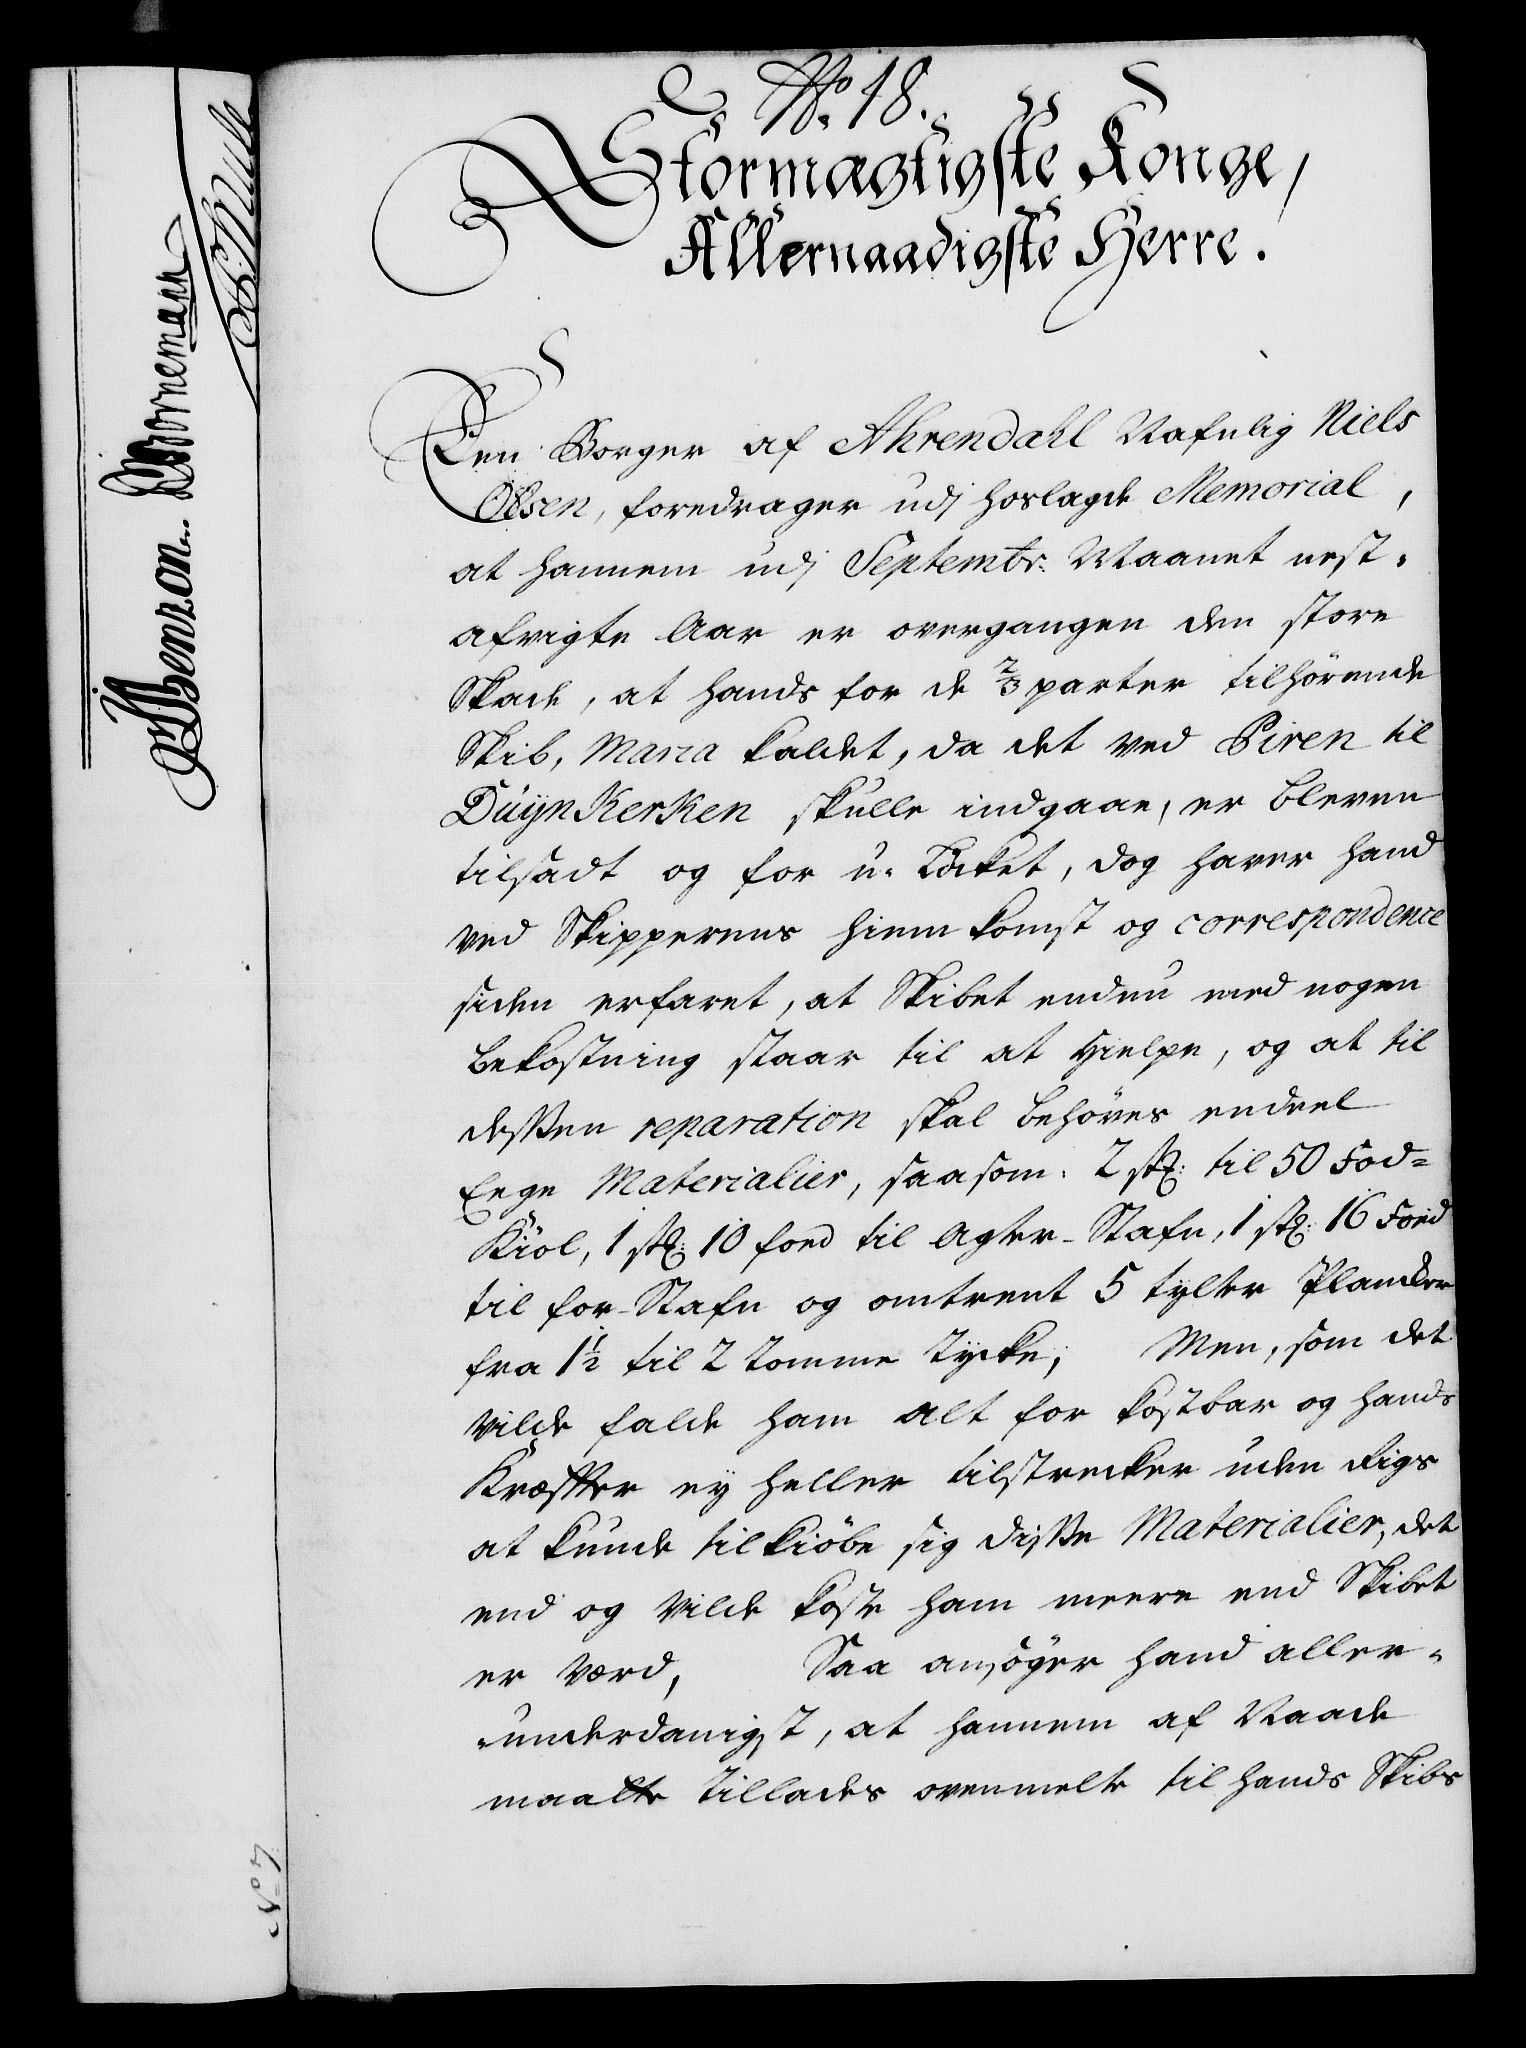 No. 18.
Stormægtigste Konge,
Allernaadigste Herre.
Een Borger af Ahrendahl Nafnlig Niels
Olsen, foredrager udj hoslagde Memorial,
at hannem udj Septembr: Maanet nest-
afvigte Aar er overgangen den store
Skade, at hands for de 2/3 parter tilhörende
Skib, Maria kaldet, da det ved Piren til
Duÿnkerken skulle indgaae, er bleven
tilsadt og for u-Löcket, dog haver hand
ved Skipperens hiemkomst og correspondence
siden erfaret, at Skibet endnu med nogen
bekostning staar til at Hielpe, og at til
dessen reparation skal behöves endeel
Eege Materialier, saasom: 2 stk: til 50 Fod-
Kiöl, 1 stk: 10 foed til Agter-Stafn, 1 stk: 16 Foed
til for-Stafn og omtrent 5 tylter Plancker
fra 1 1/2 til 2 Tomme Tycke; Men, som det
vilde falde ham alt for kostbar og hands
Kræfter eÿ heller tilstrecker uden Rigs
at kunde tilkiöbe sig disse Materialier, det
end og vilde koste ham meere end Skibet
er værd, Saa ansöger hand aller-
-underdanigst, at hannem af Naade
maatte Tillades ovenmelte til hands Skibs
Benzon. Bornemann
No 7